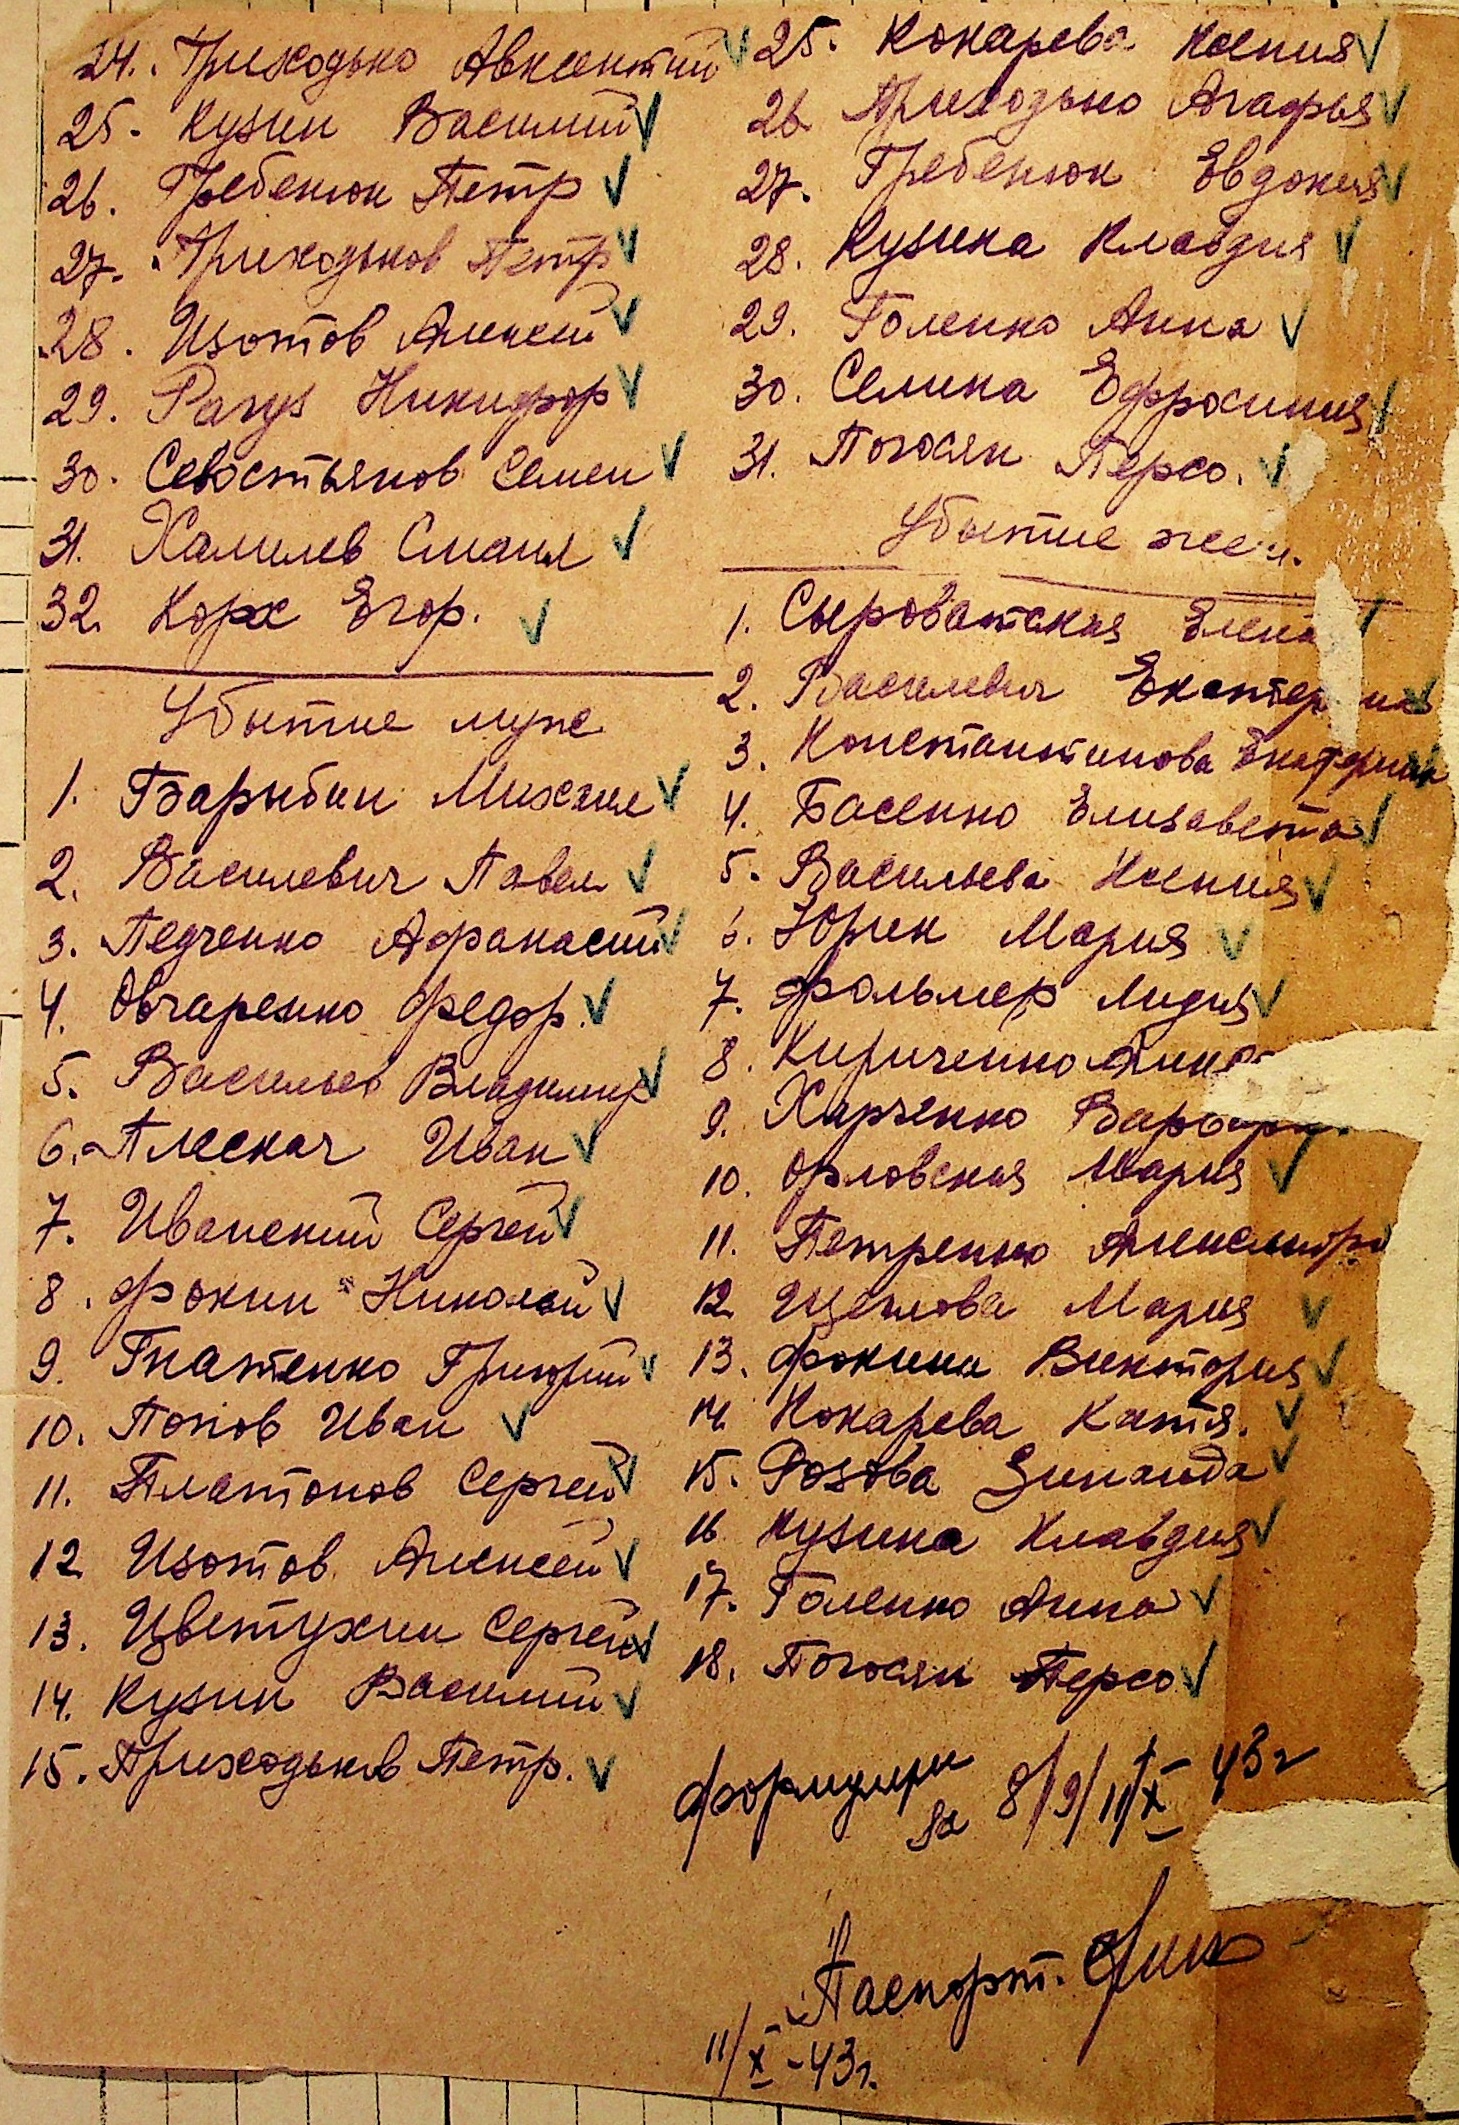 24. Приходько Авксентий
25. Кузин Василий
26. Гребенюк Петр
27. Приходьков Петр
28. Изотов Алексей
29. Никифор
30. Севостьянов Семен
31. Халилев Смаил
32. Корх Егор.
Убытие муж
1. Барыбин Михаил
2. Василевич Павел
3. Педченко Афанасий
4. Овчаренко Федор.
5. Васильев Владимир
6. Плескач Иван
7. Иванский Сергей
8. Фокин Николай
9. Гнатенко Григорий
10. Попов Иван
11. Платонов Сергей
12 Изотов Алексей
13. Цветухин Сергей
14. Кузин Василий
15. Приходьков Петр.
25. Кокарева Ксения
26. Приходько Агафья
27. Гребенюк Евдокия
28. Кузина Клавдия
29. Голенко Анна
30. Селина Ефросиния
31. Погосян Персо.
Убытие жен.
1. Сыроватская Елена
2. Василевич Екатерина
3. Константинова Екатерина
4. Басенко Елизавета
5. Васильева Ксения
6. Юрек Мария
7. Фольмер Лидия
8. Кириченко Анна
9. Харченко Варвара
10. Орловская Мария
11. Петренко Александра
12. Щеглова Мария
13. Фокина Виктория
14. Кокарева Катя.
15. Розова Зинаида
16 Кузина Клавдия
17. Голенко Анна
18. Погосян Персо
формуляры
за 8/9/11/X 43г
Паспорт.
11/X -43г.